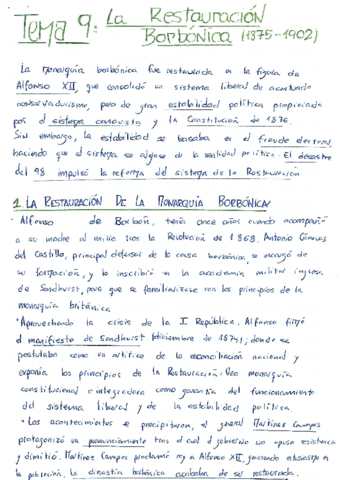 Tema 9: La Restauración
Borbónica (1875-1902)
La monarquía borbónica fue restaurada en la figura de
Alfonso XII, que consolidó un sistema liberal de acentuado
conservadurismo, pero de gran estabilidad política propiciada
por el sistema canovista y la Constitución de 1876.
Sin embargo, la estabilidad se basaba en el fraude electoral,
haciendo que el sistema se alejase de la realidad política. El desastre
del 98 impulsó la reforma del sistema de la Restauración
1. LA RESTAURACIÓN DE LA MONARQUÍA BORBÓNICA
· Alfonso de Borbón, tenía once años cuando acompañó
a su madre al exilio tras la Revolución de 1868. Antonio Cánovas
del Castillo, principal defensor de la causa borbónica, se encargó de
su formación, y lo inscribió en la academia militar inglesa
de Sandhurst, para que se familiarizase con los principios de la
monarquía británica
· Aprovechando la crisis de la I República, Alfonso firmó
el manifiesto de Sandhurst (diciembre de 1874), donde se
postulaba como un artífice de la reconciliación nacional y
exponía los principios de la Restauración: Una monarquía
constitucional e integradora como garantía del funcionamiento
del sistema liberal y de la estabilidad política.
· Los acontecimientos se precipitaron, el general Martínez Campos
protagonizó un pronunciamiento tras el cual el gobierno no opuso resistencia
y dimitió. Martínez Campos proclamó rey a Alfonso XII,
la población. La dinastía borbónica acababa de ser restaurada.